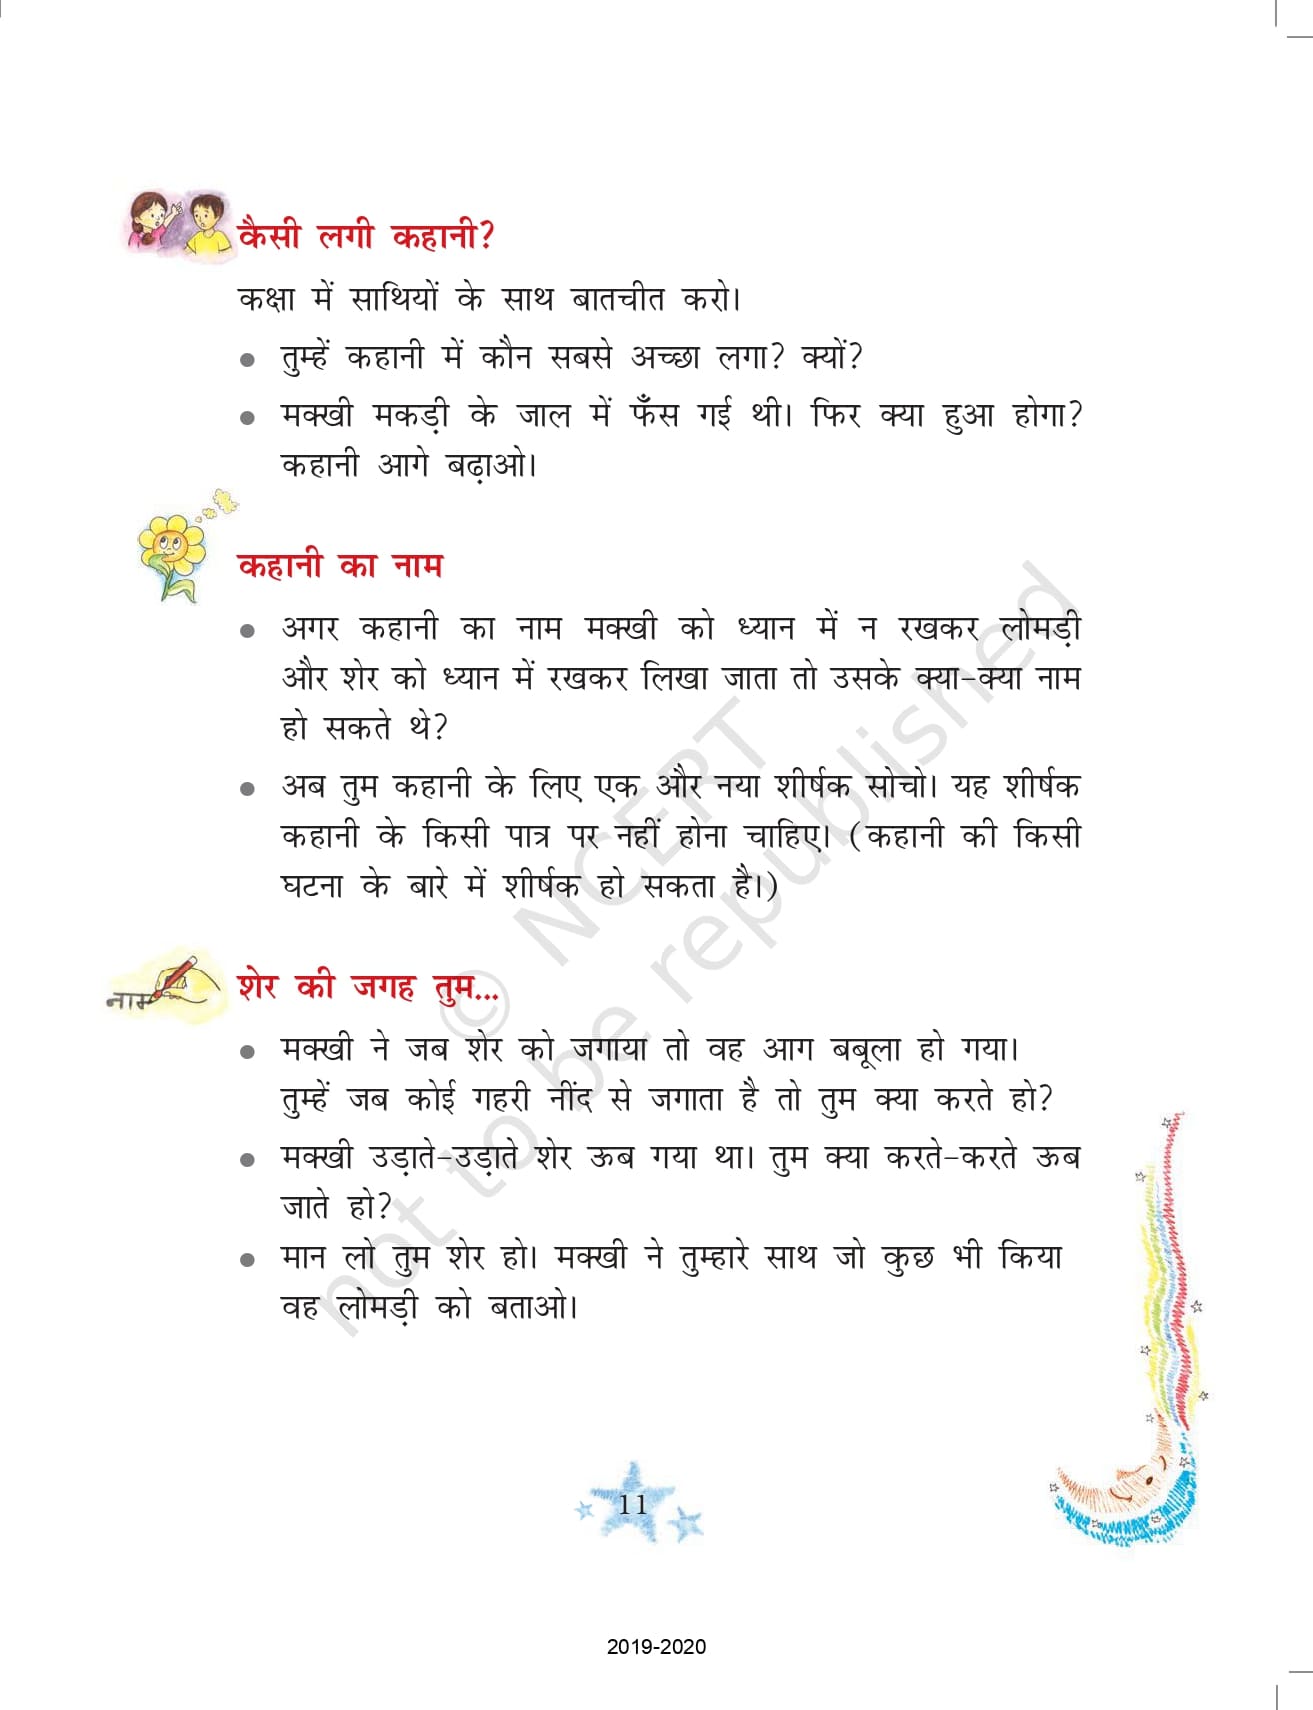 कैसी लगी कहानी?
कक्षा में साथियों के साथ बातचीत करो।
● तुम्हें कहानी में कौन सबसे अच्छा लगा? क्यों?
● मक्खी मकड़ी के जाल में फँस गई थी। फिर क्या हुआ होगा?
कहानी आगे बढ़ाओ।
कहानी का नाम
● अगर कहानी का नाम मक्खी को ध्यान में न रखकर लोमड़ी
और शेर को ध्यान में रखकर लिखा जाता तो उसके क्या-क्या नाम
हो सकते थे?
● अब तुम कहानी के लिए एक और नया शीर्षक सोचो। यह शीर्षक
कहानी के किसी पात्र पर नहीं होना चाहिए। (कहानी की किसी
घटना के बारे में शीर्षक हो सकता है।)
नाम
शेर की जगह तुम...
● मक्खी ने जब शेर को जगाया तो वह आग बबूला हो गया।
तुम्हें जब कोई गहरी नींद से जगाता है तो तुम क्या करते हो?
● मक्खी उड़ाते-उड़ाते शेर ऊब गया था। तुम क्या करते-करते ऊब
जाते हो?
● मान लो तुम शेर हो। मक्खी ने तुम्हारे साथ जो कुछ भी किया
वह लोमड़ी को बताओ।
© NCERT
not to be republished
11
2019-2020